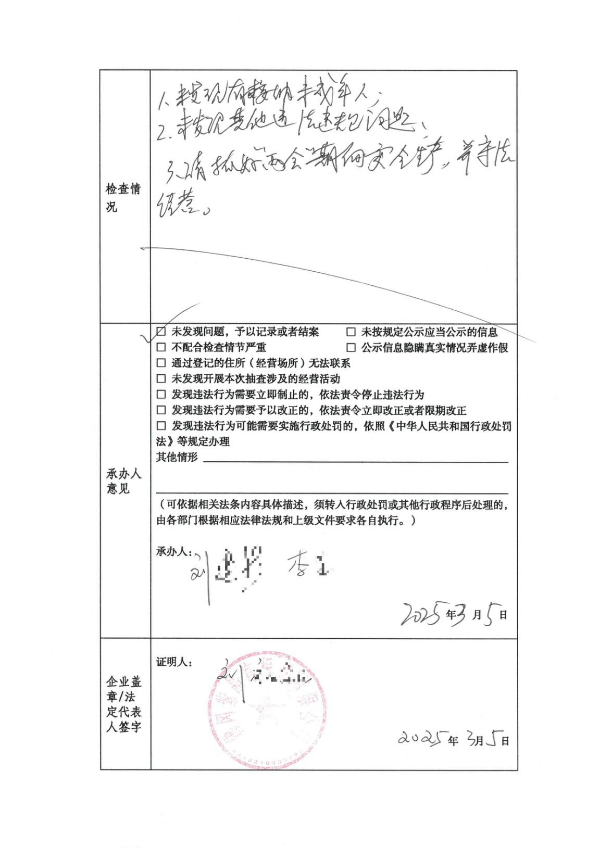 检查情
况
1、未发现有接纳未成年人;
2、未发现其他违法违规问题、
3、请抓好"两会"期间安全生产,并守法
经营。
承办人
意见
☐ 未发现问题,予以记录或者结案 ☐ 未按规定公示应当公示的信息
☐ 不配合检查情节严重 ☐ 公示信息隐瞒真实情况弄虚作假
☐ 通过登记的住所(经营场所)无法联系
☐ 未发现开展本次抽查涉及的经营活动
☐ 发现违法行为需要立即制止的,依法责令停止违法行为
☐ 发现违法行为需要予以改正的,依法责令立即改正或者限期改正
☐ 发现违法行为可能需要实施行政处罚的,依照《中华人民共和国行政处罚
法》等规定办理
其他情形
(可依据相关法条内容具体描述,须转入行政处罚或其他行政程序后处理的,
由各部门根据相应法律法规和上级文件要求各自执行。)
承办人:刘 李
2025年3月5日
企业盖
章/法
定代表
人签字
证明人:刘
2025年3月5日